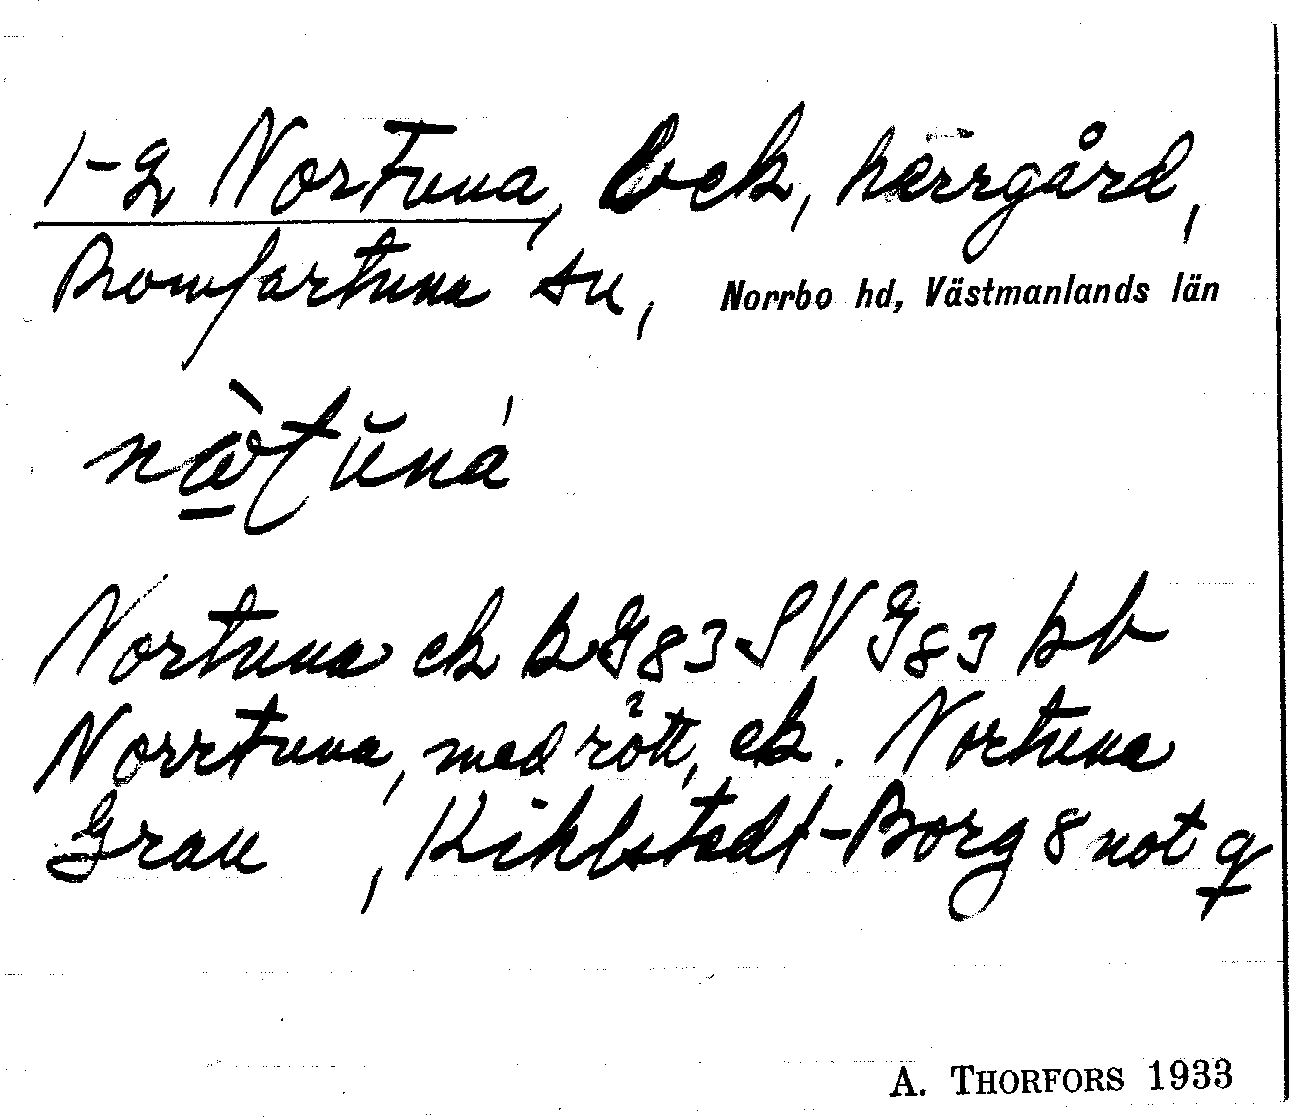 1-2 Nortuna, ek, herrgård,
Romfartuna sn, Norrbo hd, Västmanlands län
Nortuna ek RG83 SV G83 bb
Norrtuna, med rött, ek. Nortuna
Grau, Kihlstedt-Borg 8 not
A. THORFORS 1933